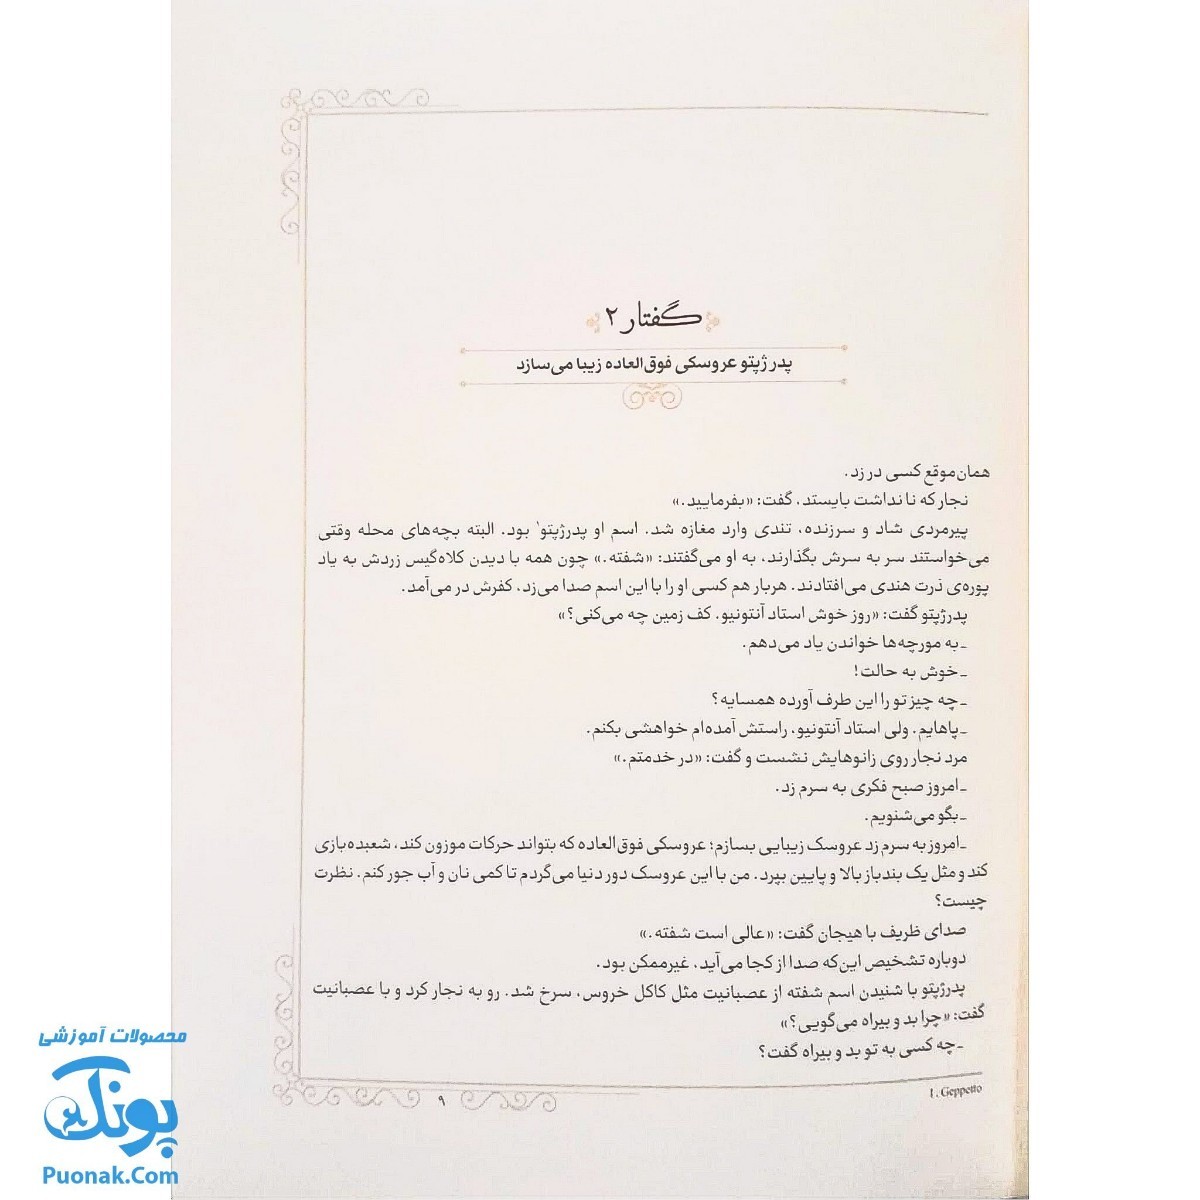 گفتار ۲
پدر ژپتو عروسکی فوق‌العاده زیبا می‌سازد
همان‌موقع کسی در زد.
نجار که نا نداشت بایستد، گفت: «بفرمایید.»
پیرمردی شاد و سرزنده، تندی وارد مغازه شد. اسم او پدرژپتو۱ بود. البته بچه‌های محله وقتی
می‌خواستند سر به سرش بگذارند، به او می‌گفتند: «شفته.» چون همه با دیدن کلاه‌گیس زردش به یاد
پوره‌ی ذرت هندی می‌افتادند. هربار هم کسی او را با این اسم صدا می‌زد، کفرش در می‌آمد.
پدرژپتو گفت: «روز خوش استاد آنتونیو. کف زمین چه می‌کنی؟»
ـ به مورچه‌ها خواندن یاد می‌دهم.
ـ خوش به حالت!
ـ چه چیز تو را این طرف آورده همسایه؟
ـ پاهایم. ولی استاد آنتونیو، راستش آمده‌ام خواهشی بکنم.
مرد نجار روی زانوهایش نشست و گفت: «در خدمتم.»
ـ امروز صبح فکری به سرم زد.
ـ بگو می‌شنویم.
ـ امروز به سرم زد عروسک زیبایی بسازم؛ عروسکی فوق‌العاده که بتواند حرکات موزون کند، شعبده‌بازی
کند و مثل یک بندباز بالا و پایین بپرد. من با این عروسک دور دنیا می‌گردم تا کمی نان و آب جور کنم. نظرت
چیست؟
صدای ظریف با هیجان گفت: «عالی است شفته.»
دوباره تشخیص این‌که صدا از کجا می‌آید، غیرممکن بود.
پدرژپتو با شنیدن اسم شفته از عصبانیت مثل کاکل خروس، سرخ شد. رو به نجار کرد و با عصبانیت
گفت: «چرا بد و بیراه می‌گویی؟»
ـ چه کسی به تو بد و بیراه گفت؟
1. Geppetto
۹
محصولات آموزشی
پونک
Puonak.Com